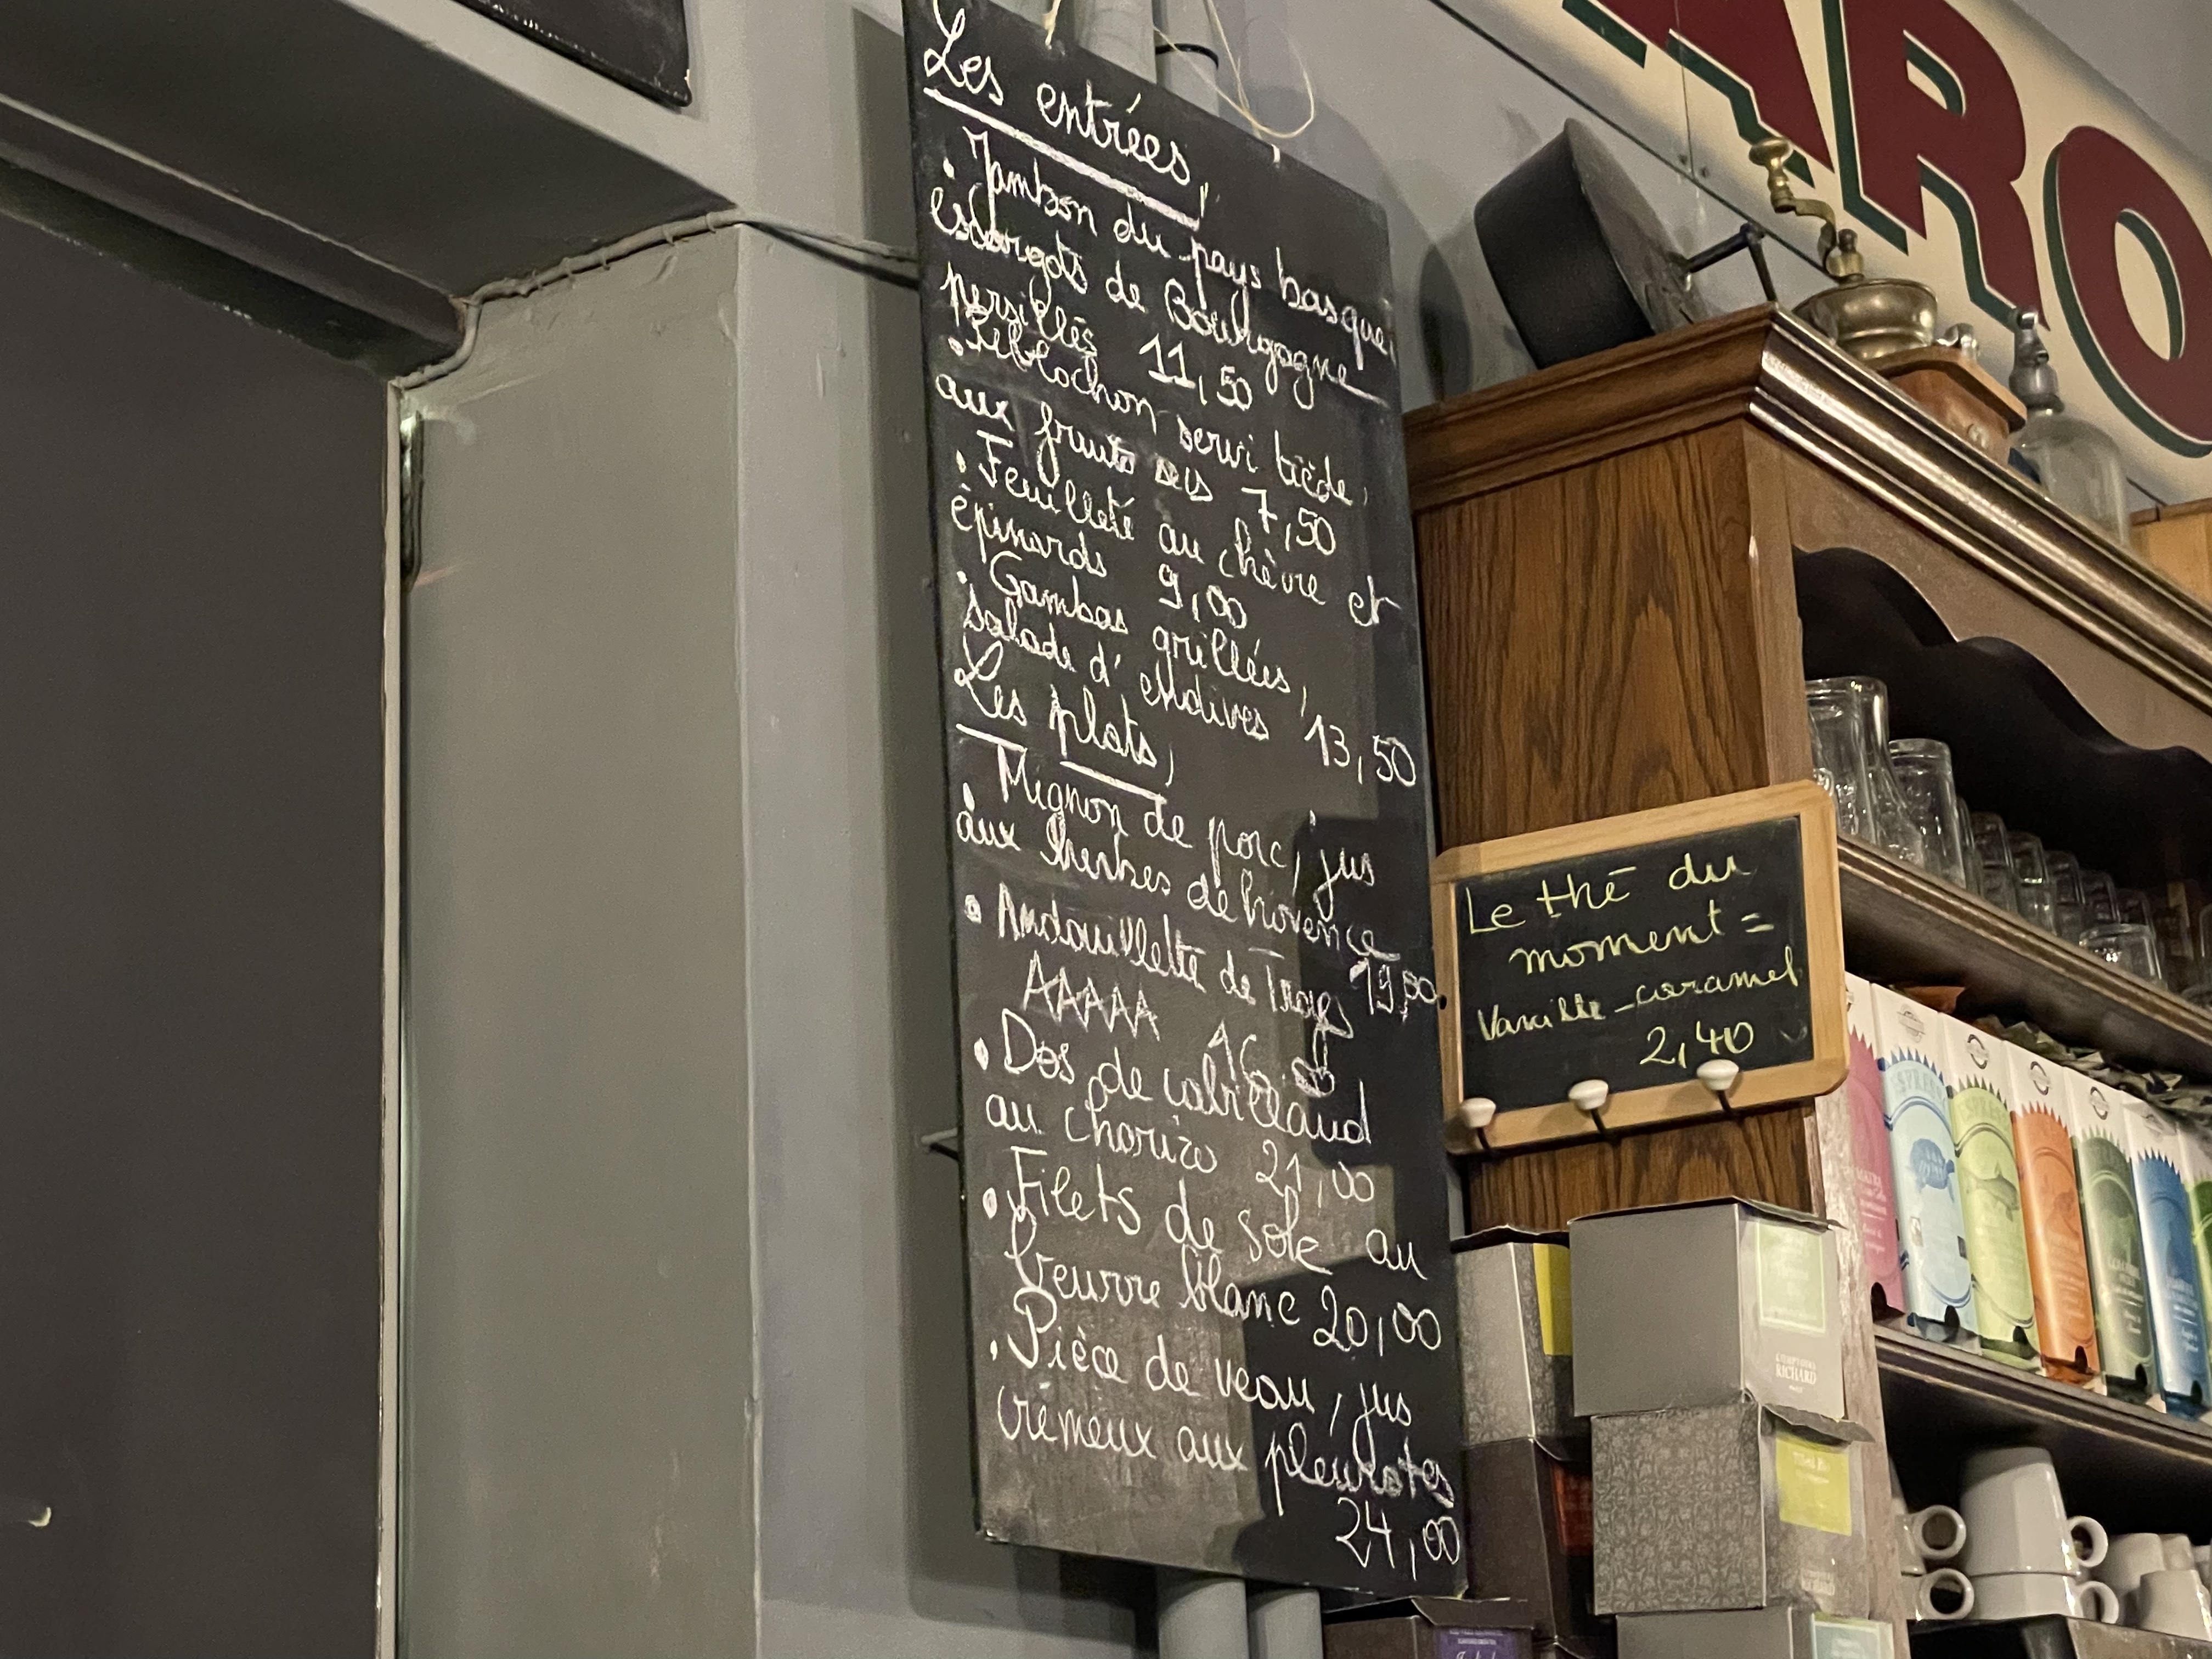 Les entrées,
• Jambon du pays basque,
escargots de Bourgogne
persillés 11,50
• Reblochon servi tiède,
aux fruits secs 7,50
• Feuilleté au chèvre et
épinards 9,00
• Gambas grillées,
salade d'endives 13,50
Les plats,
• Mignon de porc, jus
aux herbes de Provence
19,50
• Andouillette de Troyes
AAAAA 16,00
• Dos de cabillaud
au chorizo 21,00
• Filets de sole au
beurre blanc 20,00
• Pièce de veau, jus
crémeux aux pleurotes
24,00
Le thé du
moment =
Vanille-caramel
2,40
ARO
RICHARD